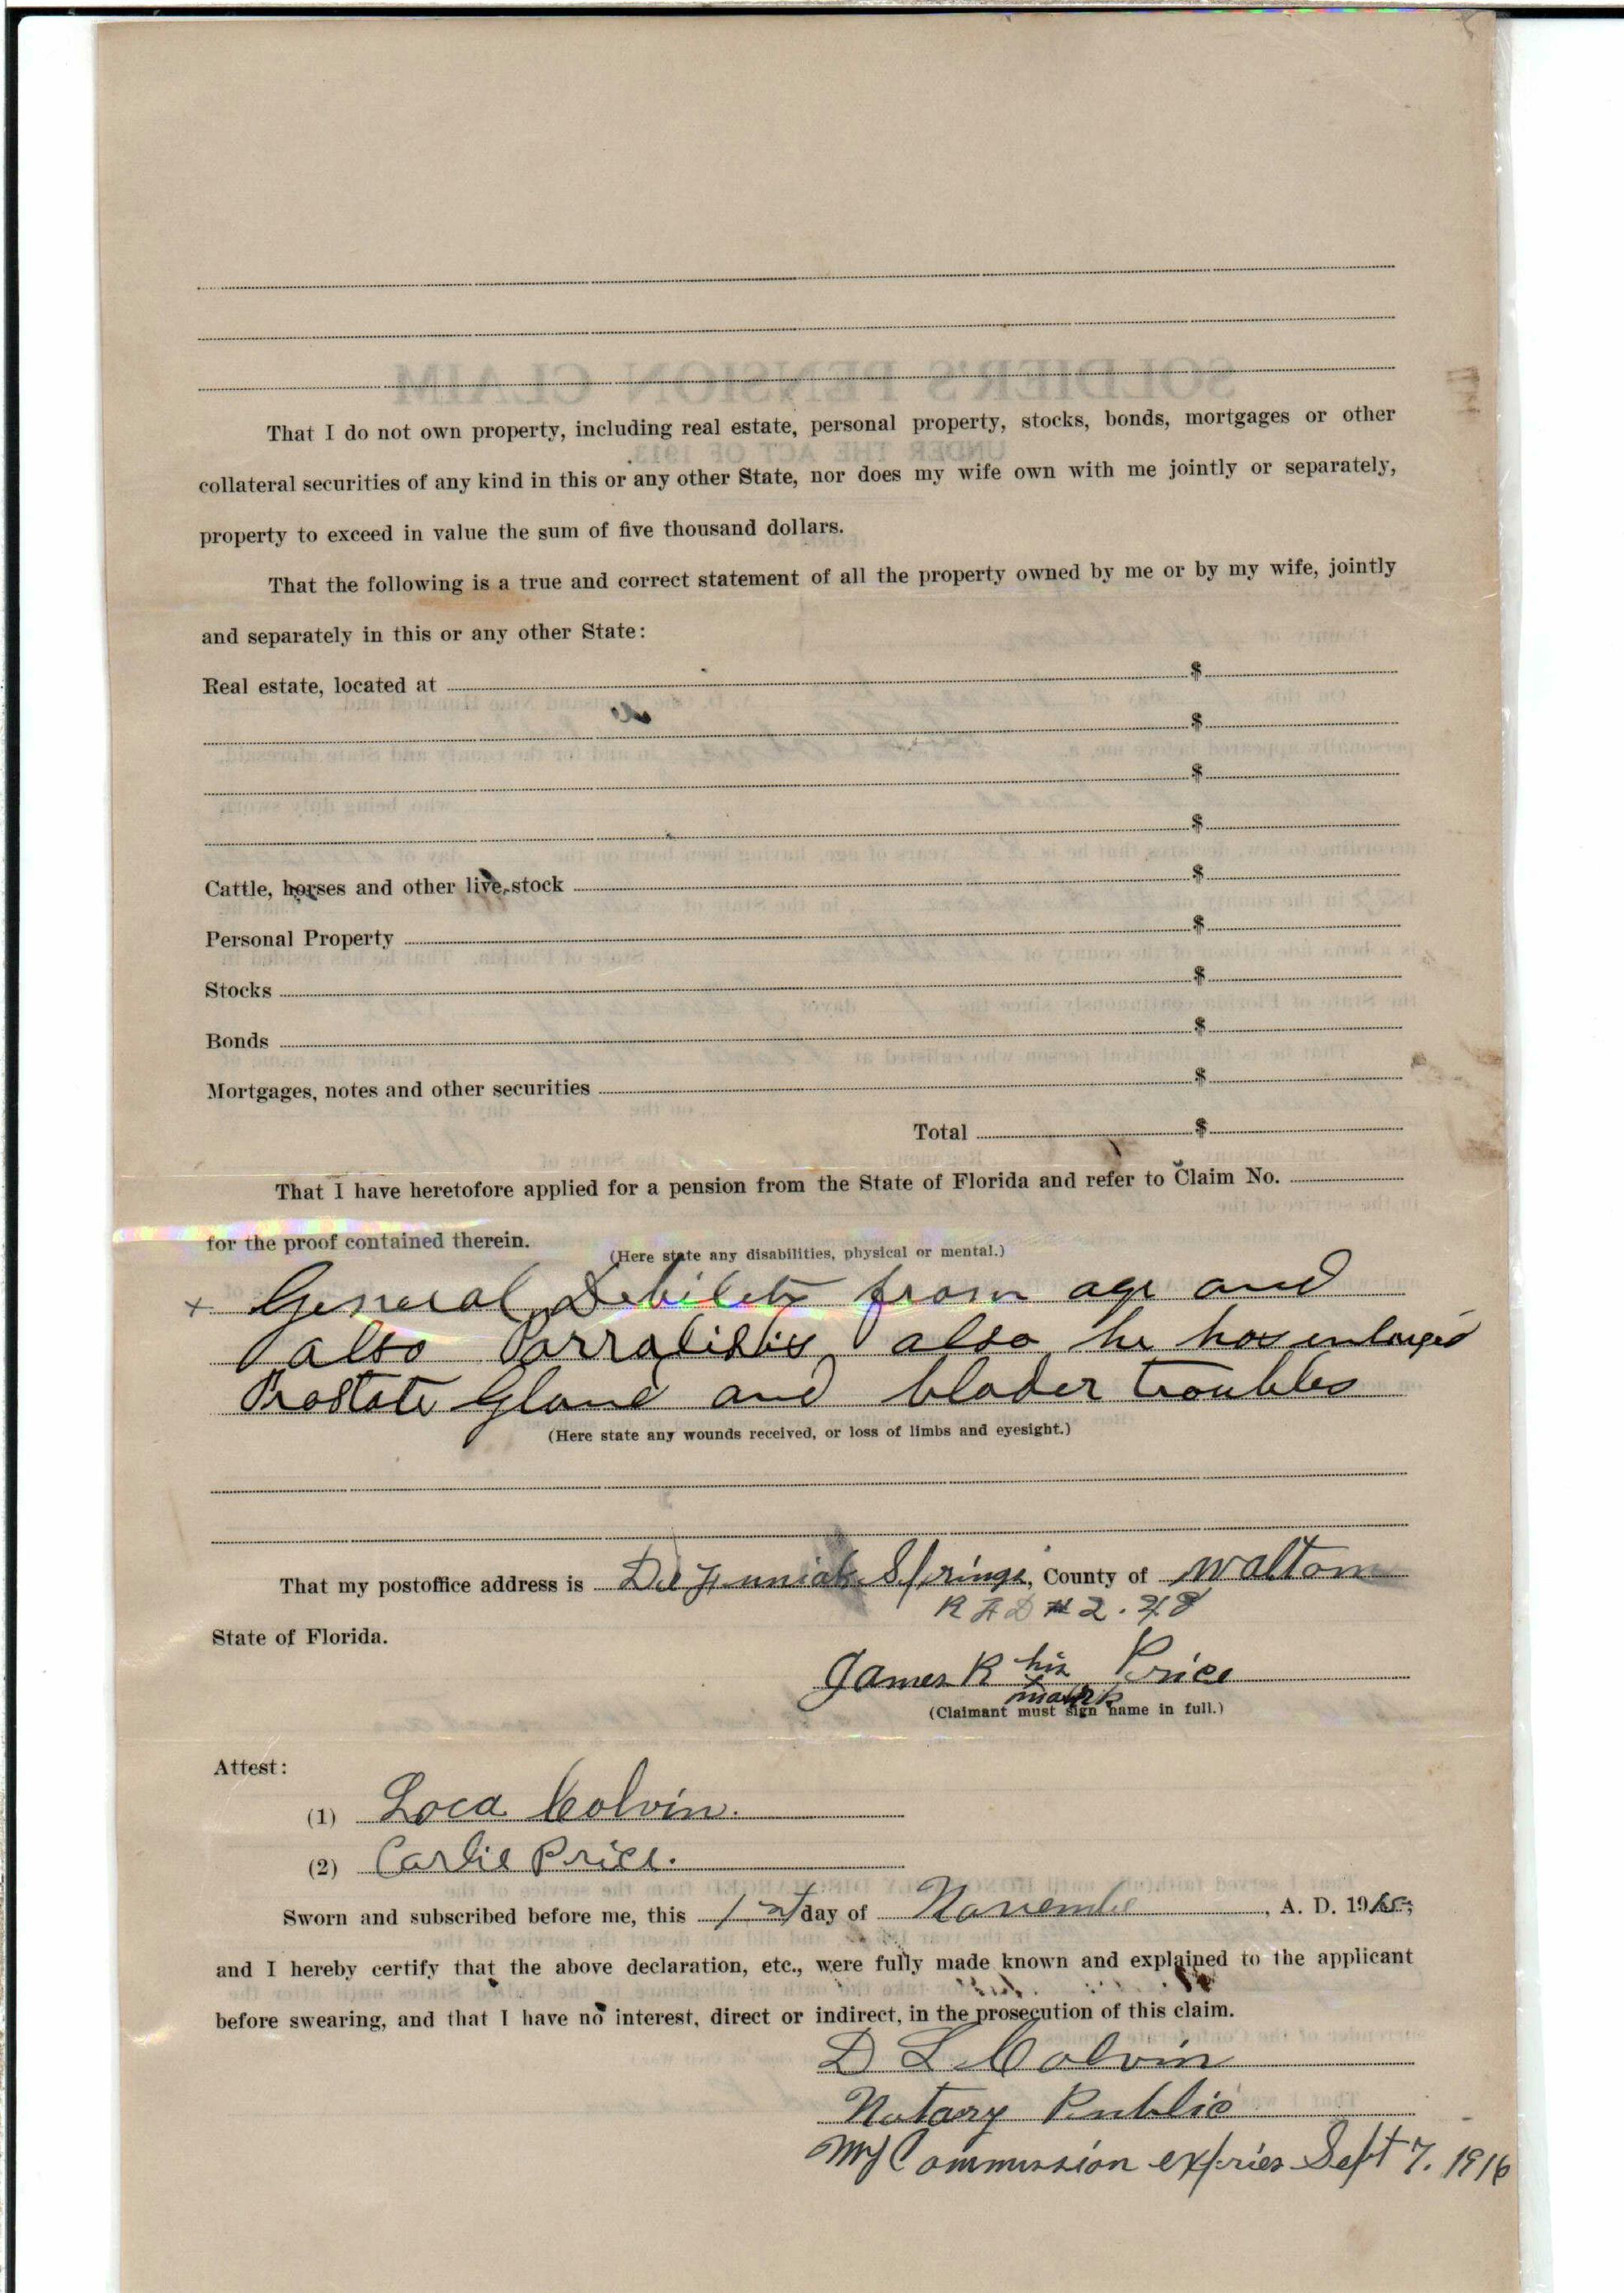 That I do not own property, including real estate, personal property, stocks, bonds, mortgages or other
collateral securities of any kind in this or any other State, nor does my wife own with me jointly or separately,
property to exceed in value the sum of five thousand dollars.
That the following is a true and correct statement of all the property owned by me or by my wife, jointly
and separately in this or any other State:
Real estate, located at $
$
$
$
Cattle, horses and other live stock $
Personal Property $
Stocks $
Bonds $
Mortgages, notes and other securities $
Total $
That I have heretofore applied for a pension from the State of Florida and refer to Claim No.
for the proof contained therein.
(Here state any disabilities, physical or mental.)
+ General Debility from age and
also Parralisis also he has enlarged
Prostate Gland and blader troubles
(Here state any wounds received, or loss of limbs and eyesight.)
That my postoffice address is Springs, County of Walton
R F D # 2.
State of Florida.
James R his Price
mark
(Claimant must sign name in full.)
Attest:
(1) Loca Colvin.
(2) Carlie Price.
Sworn and subscribed before me, this 1st day of November, A. D. 1915;
and I hereby certify that the above declaration, etc., were fully made known and explained to the applicant
before swearing, and that I have no interest, direct or indirect, in the prosecution of this claim.
D L Colvin
Notary Public
My Commission expries Sept 7. 1916